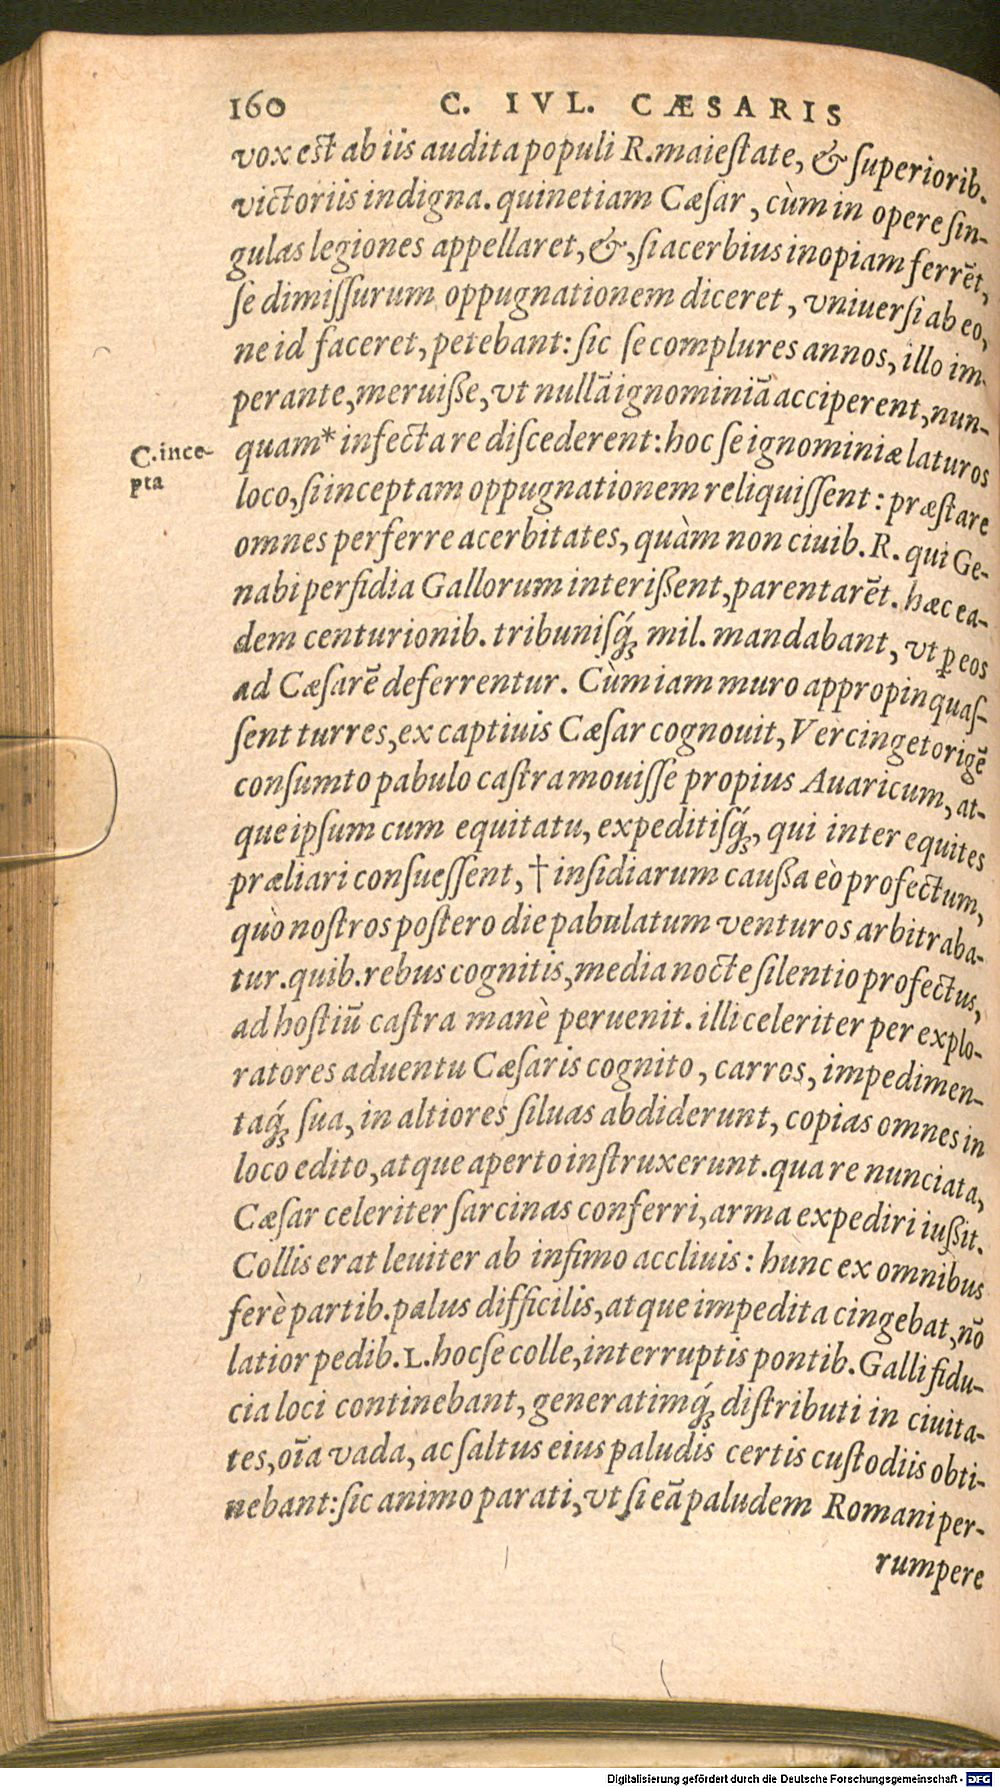 160 C. IVL. CÆSARIS
vox est ab iis audita populi R. maiestate, & superiorib.
victoriis indigna. quinetiam Cæsar, cùm in opere sin-
gulas legiones appellaret, &, si acerbius inopiam ferrēt,
se dimissurum oppugnationem diceret, vniuersi ab eo,
ne id faceret, petebant: sic se complures annos, illo im-
perante, meruisse, vt nullā ignominiā acciperent, nun-
quam* infecta re discederent: hoc se ignominiæ laturos
C. ince-
pta
loco, si inceptam oppugnationem reliquissent: præstare
omnes perferre acerbitates, quàm non ciuib. R. qui Ge-
nabi perfidia Gallorum interissent, parentarēt. hæc ea-
dem centurionib. tribunisq́; mil. mandabant, vt ꝑ eos
ad Cæsarē deferrentur. Cùm iam muro appropinquas-
sent turres, ex captiuis Cæsar cognouit, Vercingetorigē
consumto pabulo castra mouisse propius Auaricum, at-
que ipsum cum equitatu, expeditisq́;, qui inter equites
præliari consuessent, † insidiarum caussa eò profectum,
quò nostros postero die pabulatum venturos arbitraba-
tur. quib. rebus cognitis, media nocte silentio profectus,
ad hostiū castra manè peruenit. illi celeriter per explo-
ratores aduentu Cæsaris cognito, carros, impedimen-
taq́; sua, in altiores siluas abdiderunt, copias omnes in
loco edito, atque aperto instruxerunt. qua re nunciata,
Cæsar celeriter sarcinas conferri, arma expediri iussit.
Collis erat leuiter ab infimo accliuis: hunc ex omnibus
ferè partib. palus difficilis, atque impedita cingebat, nō
latior pedib. L. hoc se colle, interruptis pontib. Galli fidu-
cia loci continebant, generatimq́; distributi in ciuita-
tes, oīa vada, ac saltus eius paludis certis custodiis obti-
nebant: sic animo parati, vt si eā paludem Romani per-
rumpere
Digitalisierung gefördert durch die Deutsche Forschungsgemeinschaft - DFG